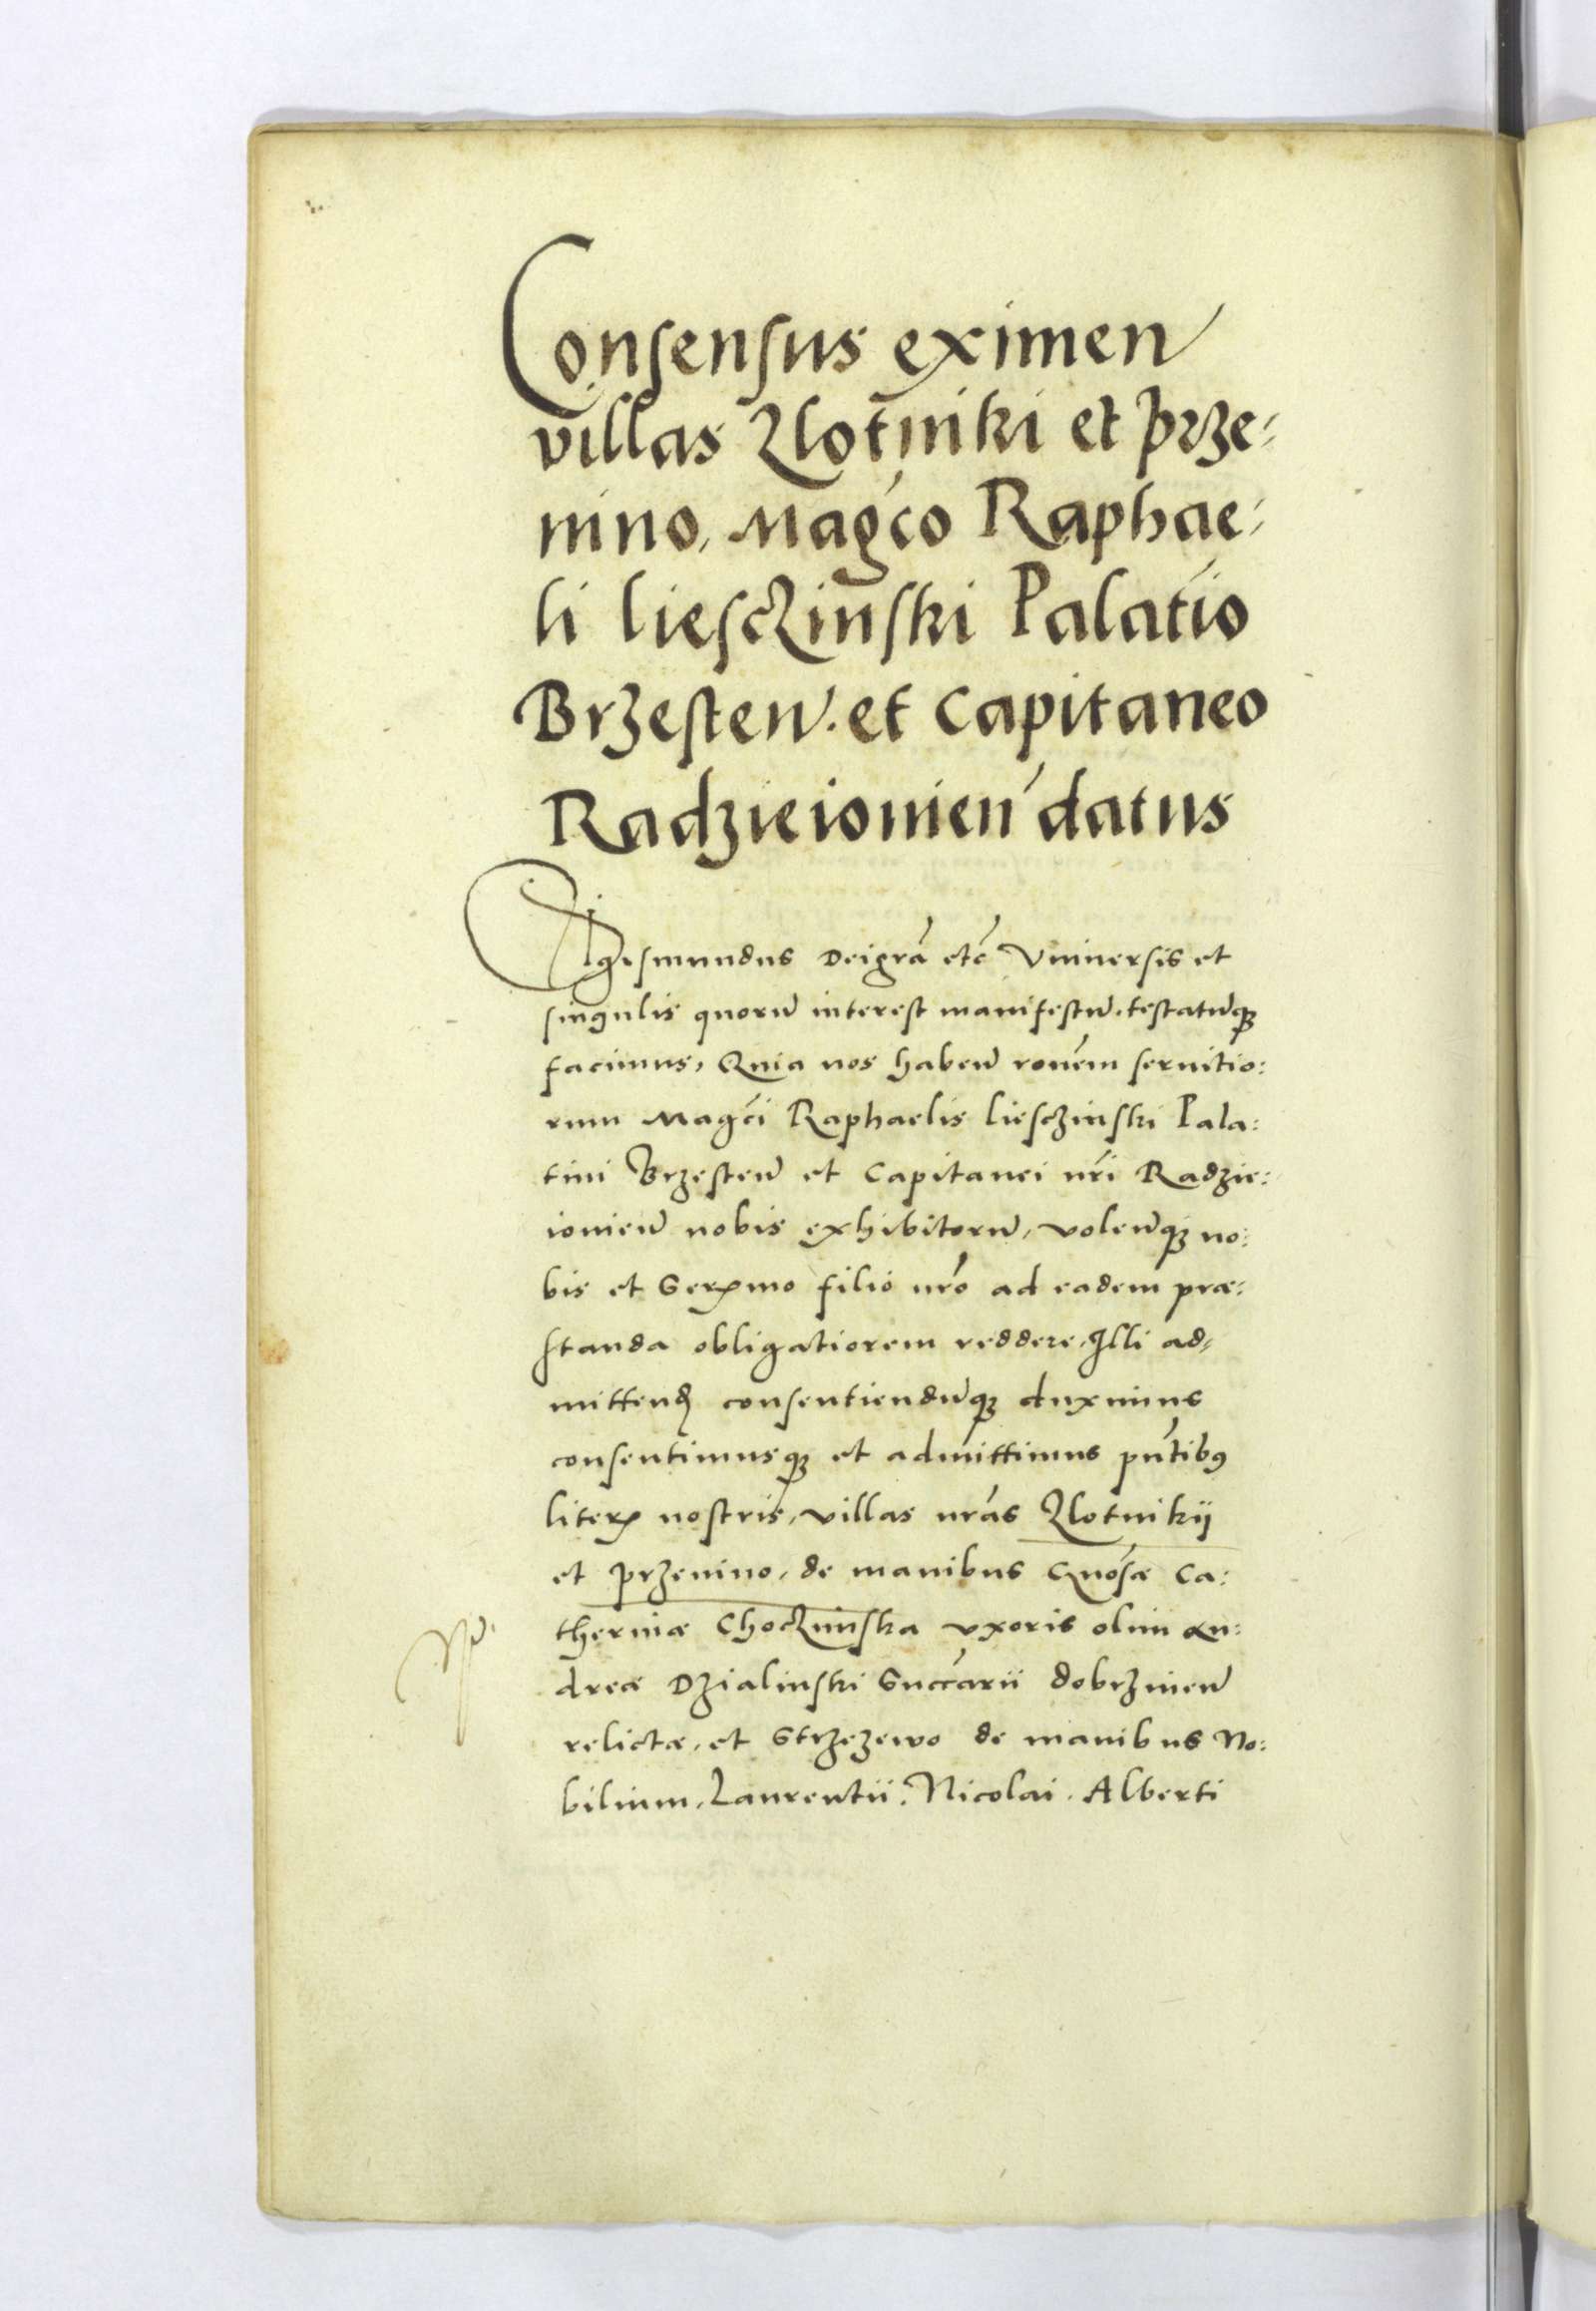 Consensus eximen
villas Zlotniki et Prze:
nino, Mag̃co Raphae:
li liesczinski Palatio
Brzesten. et Capitaneo
Radzieionien̄ datus
Sigismundus Dei grã etc̃ Vniuersis et
singulis quorũ interest manifestũ. testatũq3
facimus, Quia nos haben̄ rõnem seruitio:
rum Mag̃ci Raphaelis liesczinski Pala:
tini Brzesten̄ et Capitanei nr̃i Radzie:
ionien̄ nobis exhibitorũ, volen̄q3 no:
bis et Serꝫmo filio nr̃o ad eadem præ:
standa obligatiorem reddere, Illi ad,
mittenđ consentiendũq3 duximus
consentimusq3 et admittimus pñtibꝰ
literꝫ nostris, villas nr̃as Zlotnikij
et Przenino, de manibus Gñosæ Ca:
therinæ Choczimska vxoris olim An:
dreæ Dzialinski Succãrii dobrzinien̄
relictæ, et Strzezewo de manibus No:
bilium, Laurentii, Nicolai, Alberti